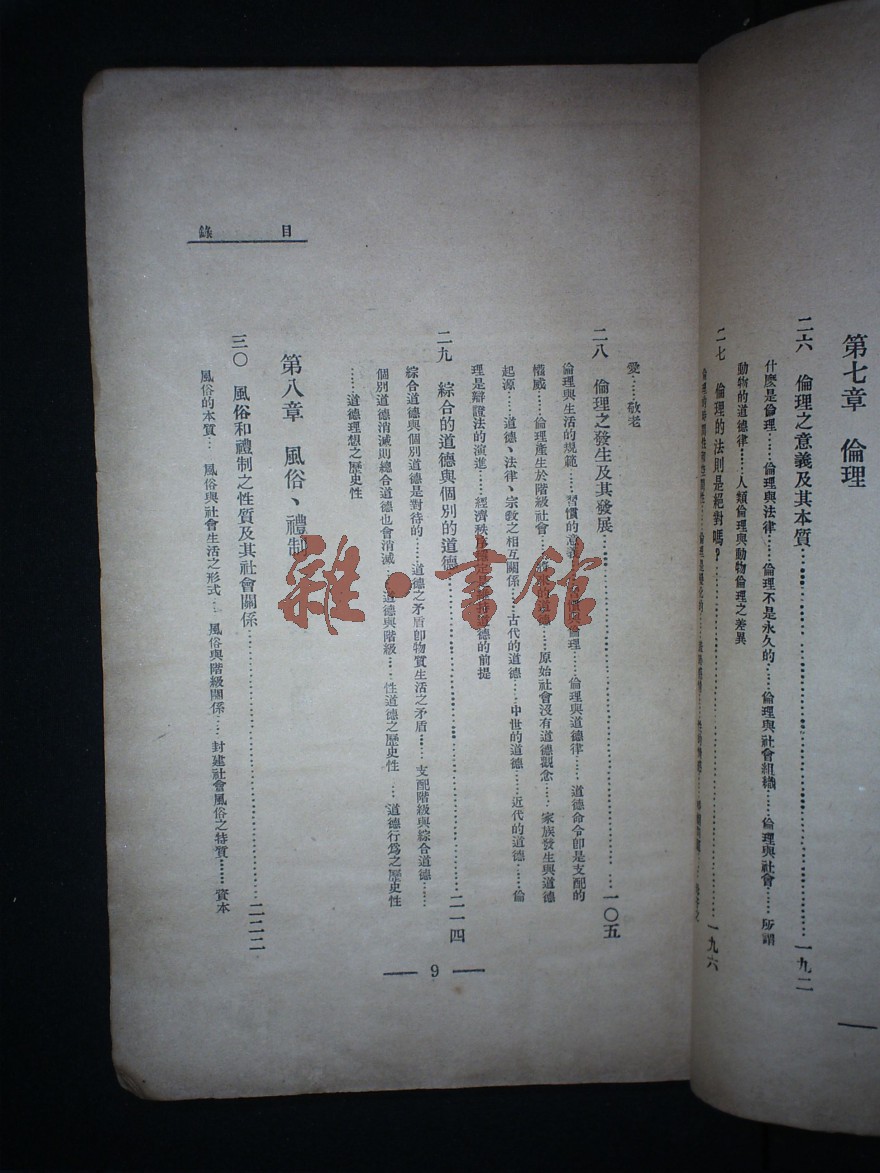 第七章 倫理
二六 倫理之意義及其本質……一九二
什麼是倫理……倫理與法律……倫理不是永久的……倫理與社會組織……倫理與社會……所謂
動物的道德律……人類倫理與動物倫理之差異
二七 倫理的法則是絕對嗎?……一九六
目錄
愛……敬老
二八 倫理之發生及其發展……一〇五
倫理與生活的規範……習慣的意義……與倫理……倫理與道德律……道德命令卽是支配的
權威……倫理產生於階級社會……的道德……原始社會沒有道德觀念……家族發生與道德
起源……道德、法律、宗敎之相互關係……古代的道德……中世的道德……近代的道德……倫
理是辯證法的演進……經濟秩序……道德的前提
二九 綜合的道德與個別的道德……二一四
綜合道德與個別道德是對待的……道德之矛盾卽物質生活之矛盾……支配階級與綜合道德……
個別道德消滅則總合道德也會消滅……道德與階級……性道德之歷史性……道德行爲之歷史性
……道德理想之歷史性
第八章 風俗、禮制
三〇 風俗和禮制之性質及其社會關係……二二二
風俗的本質……風俗與社會生活之形式……風俗與階級關係……封建社會風俗之特質……資本
9
雜·書館